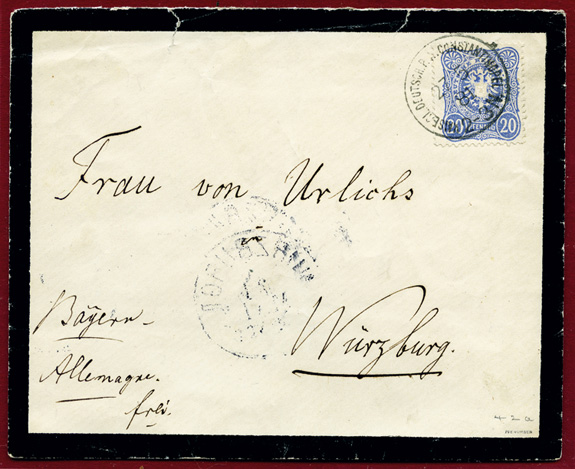 KAISERL. DEUTSCH. P. A. CONSTANTINOPEL
20 20
Frau von Urlichs
in
Würzburg.
Bayern
Allemagne.
frei.